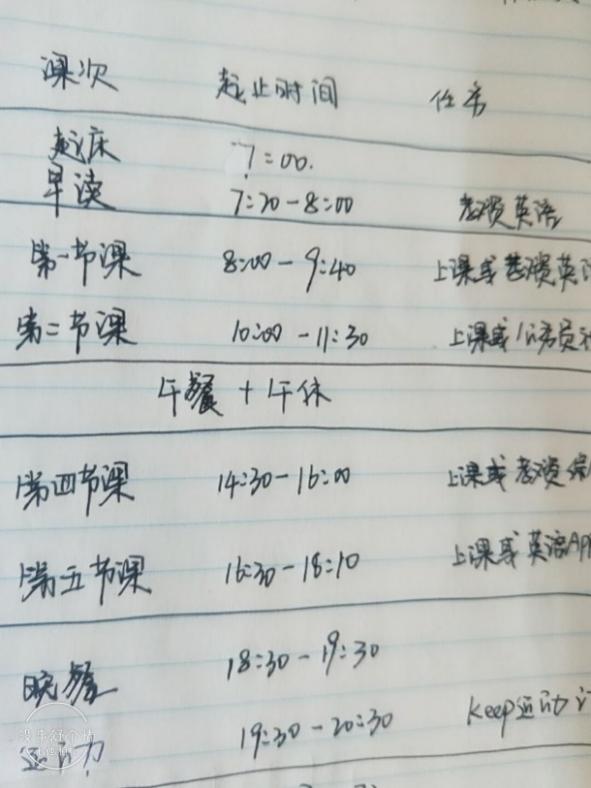 课次 起止时间 任务
起床 7:00.
早读 7:20-8:00 考资英语
第一节课 8:00-9:40 上课或考资英
第二节课 10:00-11:30 上课或公务员
午餐+午休
第四节课 14:30-16:00 上课或考资综
第五节课 16:30-18:10 上课或英语AP
晚餐 18:30-19:30
运动 19:30-20:30 keep运动